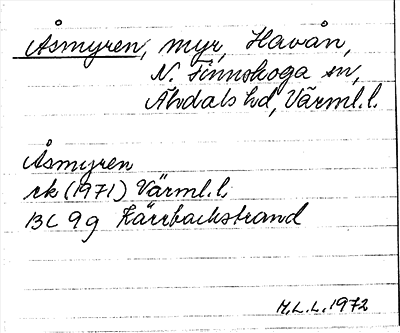 Åsmyren, myr, Havån,
N. Finnskoga sn,
Älvdals hd, Värml. l.
Åsmyren
rk (1971) Värml. l.
13C 9g Kärrbackstrand
M.L.L. 1972